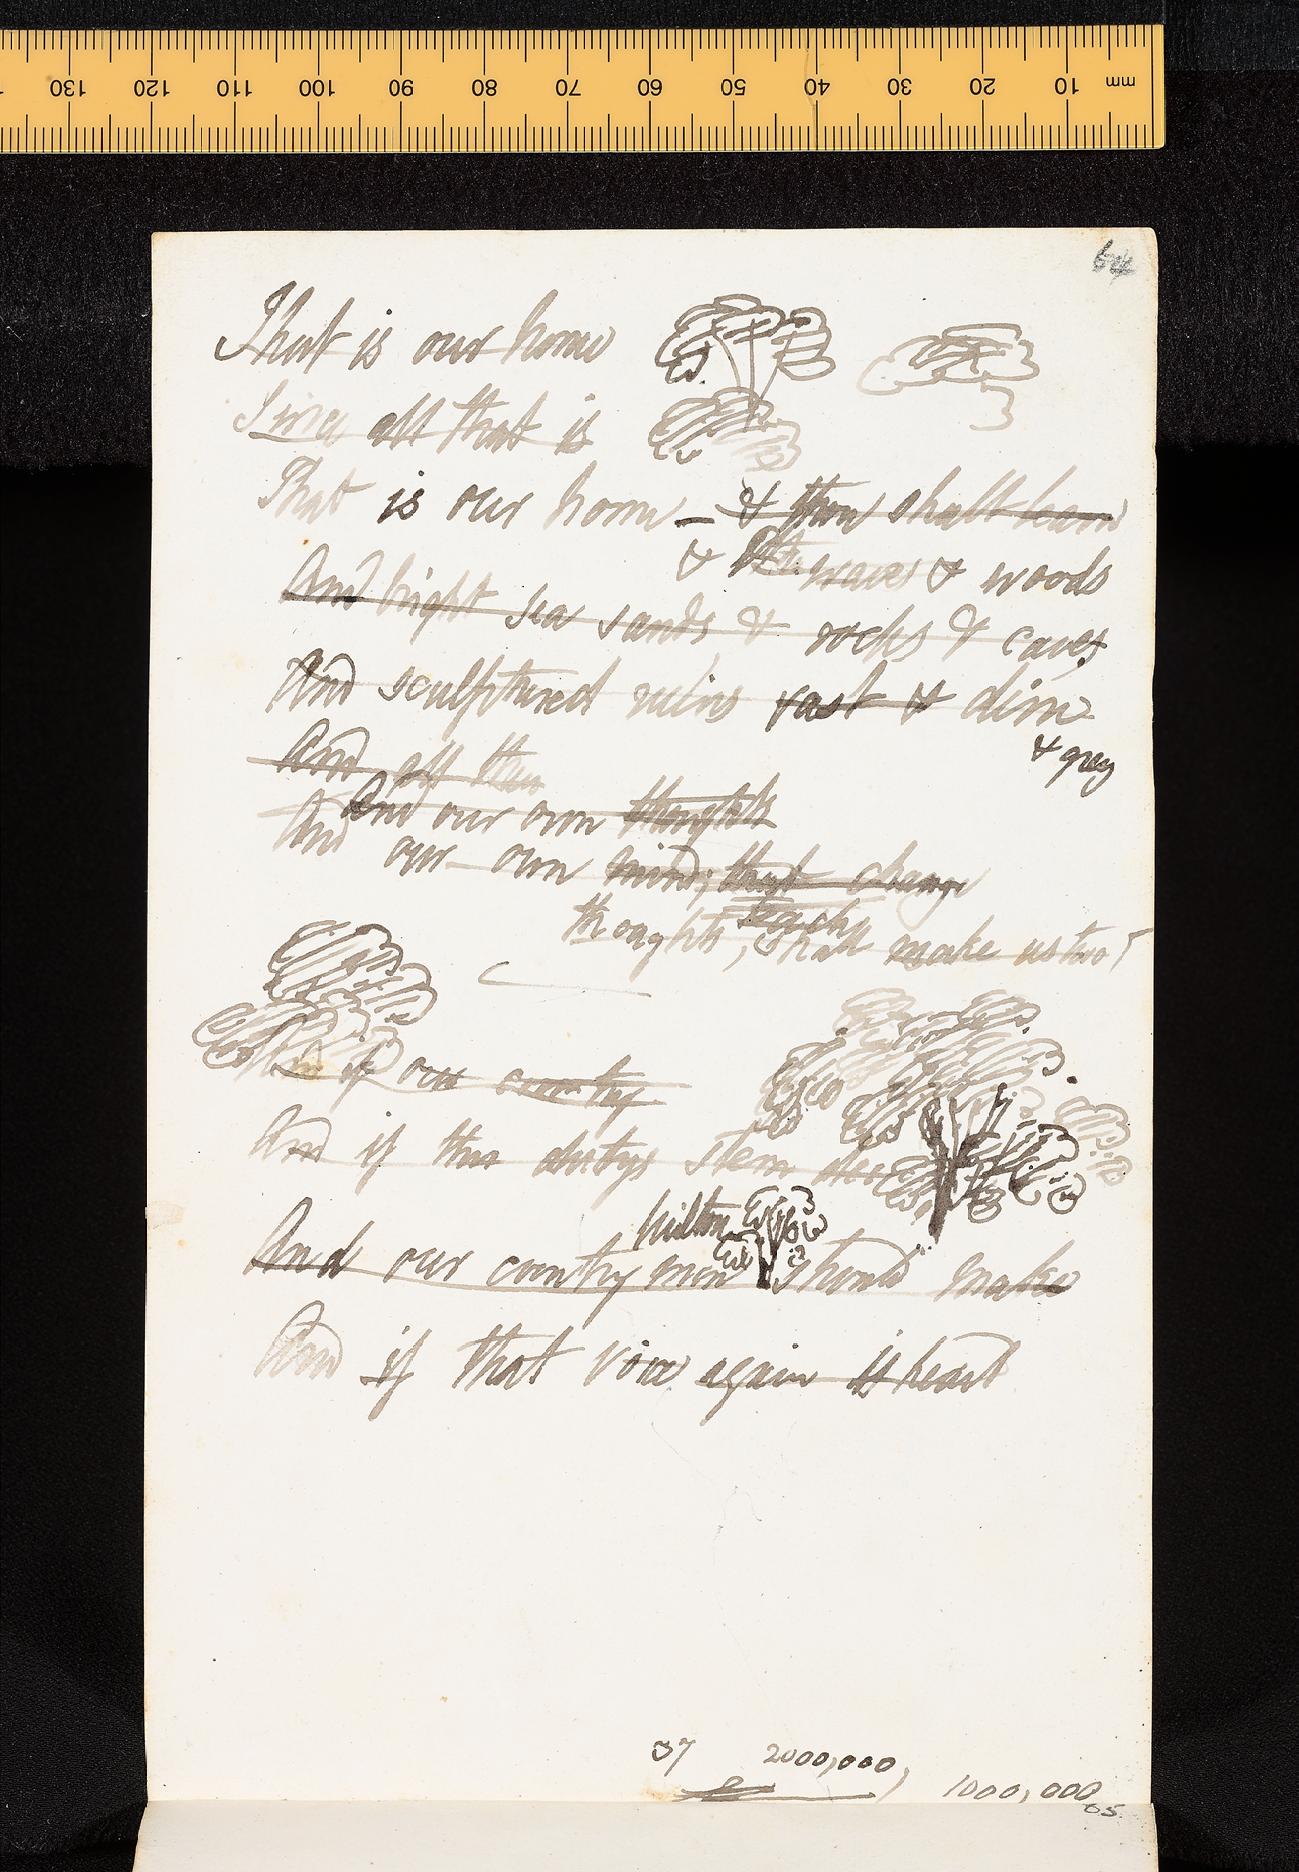 mm 10 20 30 40 50 60 70 80 90 100 110 120 130
64
That is our home
Since all that is
That is our home – & thou shalt learn
& the waves & woods
And bright sea sands & rocks & caves
And sculptured ruins vast & dim
& grey
And all thin
And our own thoughts
And our own mind; that change
teach
thoughts, shall make us two
if our country
And if thin dutys stern
hilton
And our country men should make
And if that voice again is heard
37 2000,000,
1000,000
65